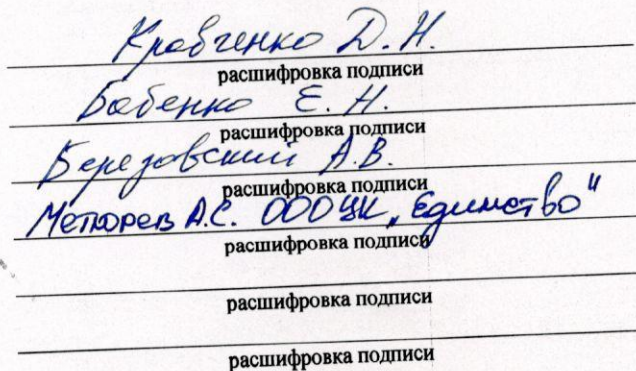 Кравченко Д. Н.
расшифровка подписи
Бабенко Е. Н.
расшифровка подписи
Березовский А.В.
расшифровка подписи
А.С. ООО УК „Единство"
расшифровка подписи
расшифровка подписи
расшифровка подписи